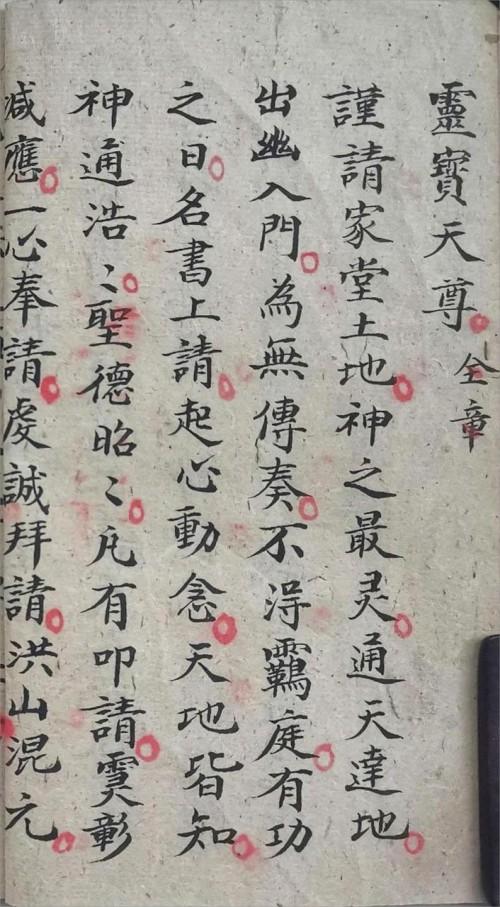 靈寶天尊 全章
謹請家堂土地神之最灵通天達地
出幽入門為無傳奏不淂庭有功
之日名書上請起心動念天地皆知
神通浩〻聖德昭〻凡有叩請彰
減應一心奉請虔誠拜請洪山混元